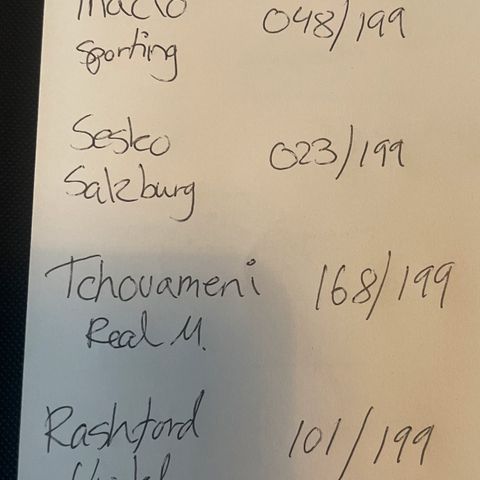 048/199
Sporting
Sesko 023/199
Salzburg
Tchouameni 168/199
Real M.
Rashford 101/199